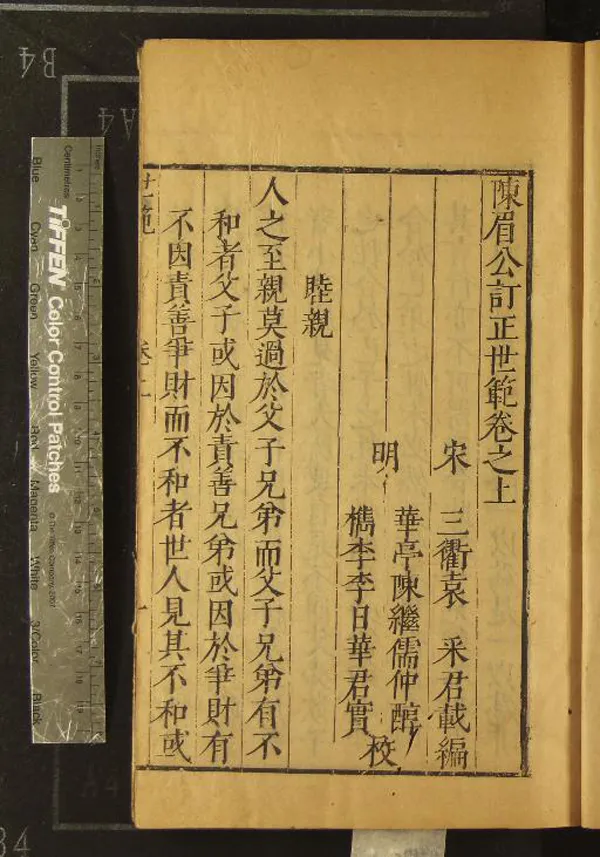 陳眉公訂正世範卷之上
宋 三衢袁 采君載編
明 華亭陳繼儒仲醇
檇李李日華君實 校
睦親
人之至親莫過於父子兄弟而父子兄弟有不
和者父子或因於責善兄弟或因於爭財有
不因責善爭財而不和者世人見其不和或
世範 卷上 一
B4
A4
inches
Centimetres
TIFFEN Color Control Patches
© The Tiffen Company, 2007
Blue
Cyan
Green
Yellow
Red
Magenta
White
3/Color
Black
A4
B4